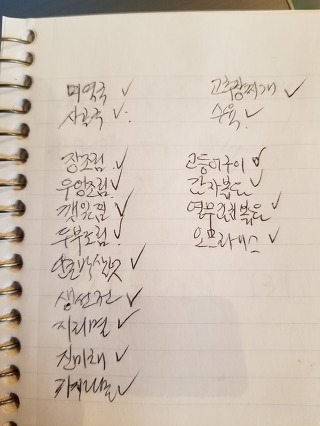 미역국 ✓
사골국 ✓
장조림 ✓
우엉조림 ✓
깻잎찜 ✓
두부조림 ✓
생선전 ✓
지리멸 ✓
진미채 ✓
가지나물 ✓
고추장찌개 ✓
수육 ✓
고등어구이 ✓
감자볶음 ✓
열무김치볶음 ✓
오므라이스 ✓